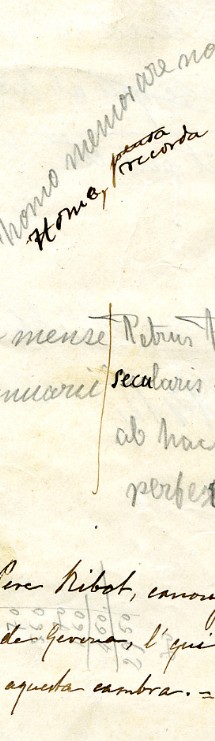 homo memorare no
Home, pensa
recorda
mense
nuarii
Petrus
secularis
ab hac
perfe
Pere Ribot, canon
de Gerona, l'qui
aquesta cambra. =